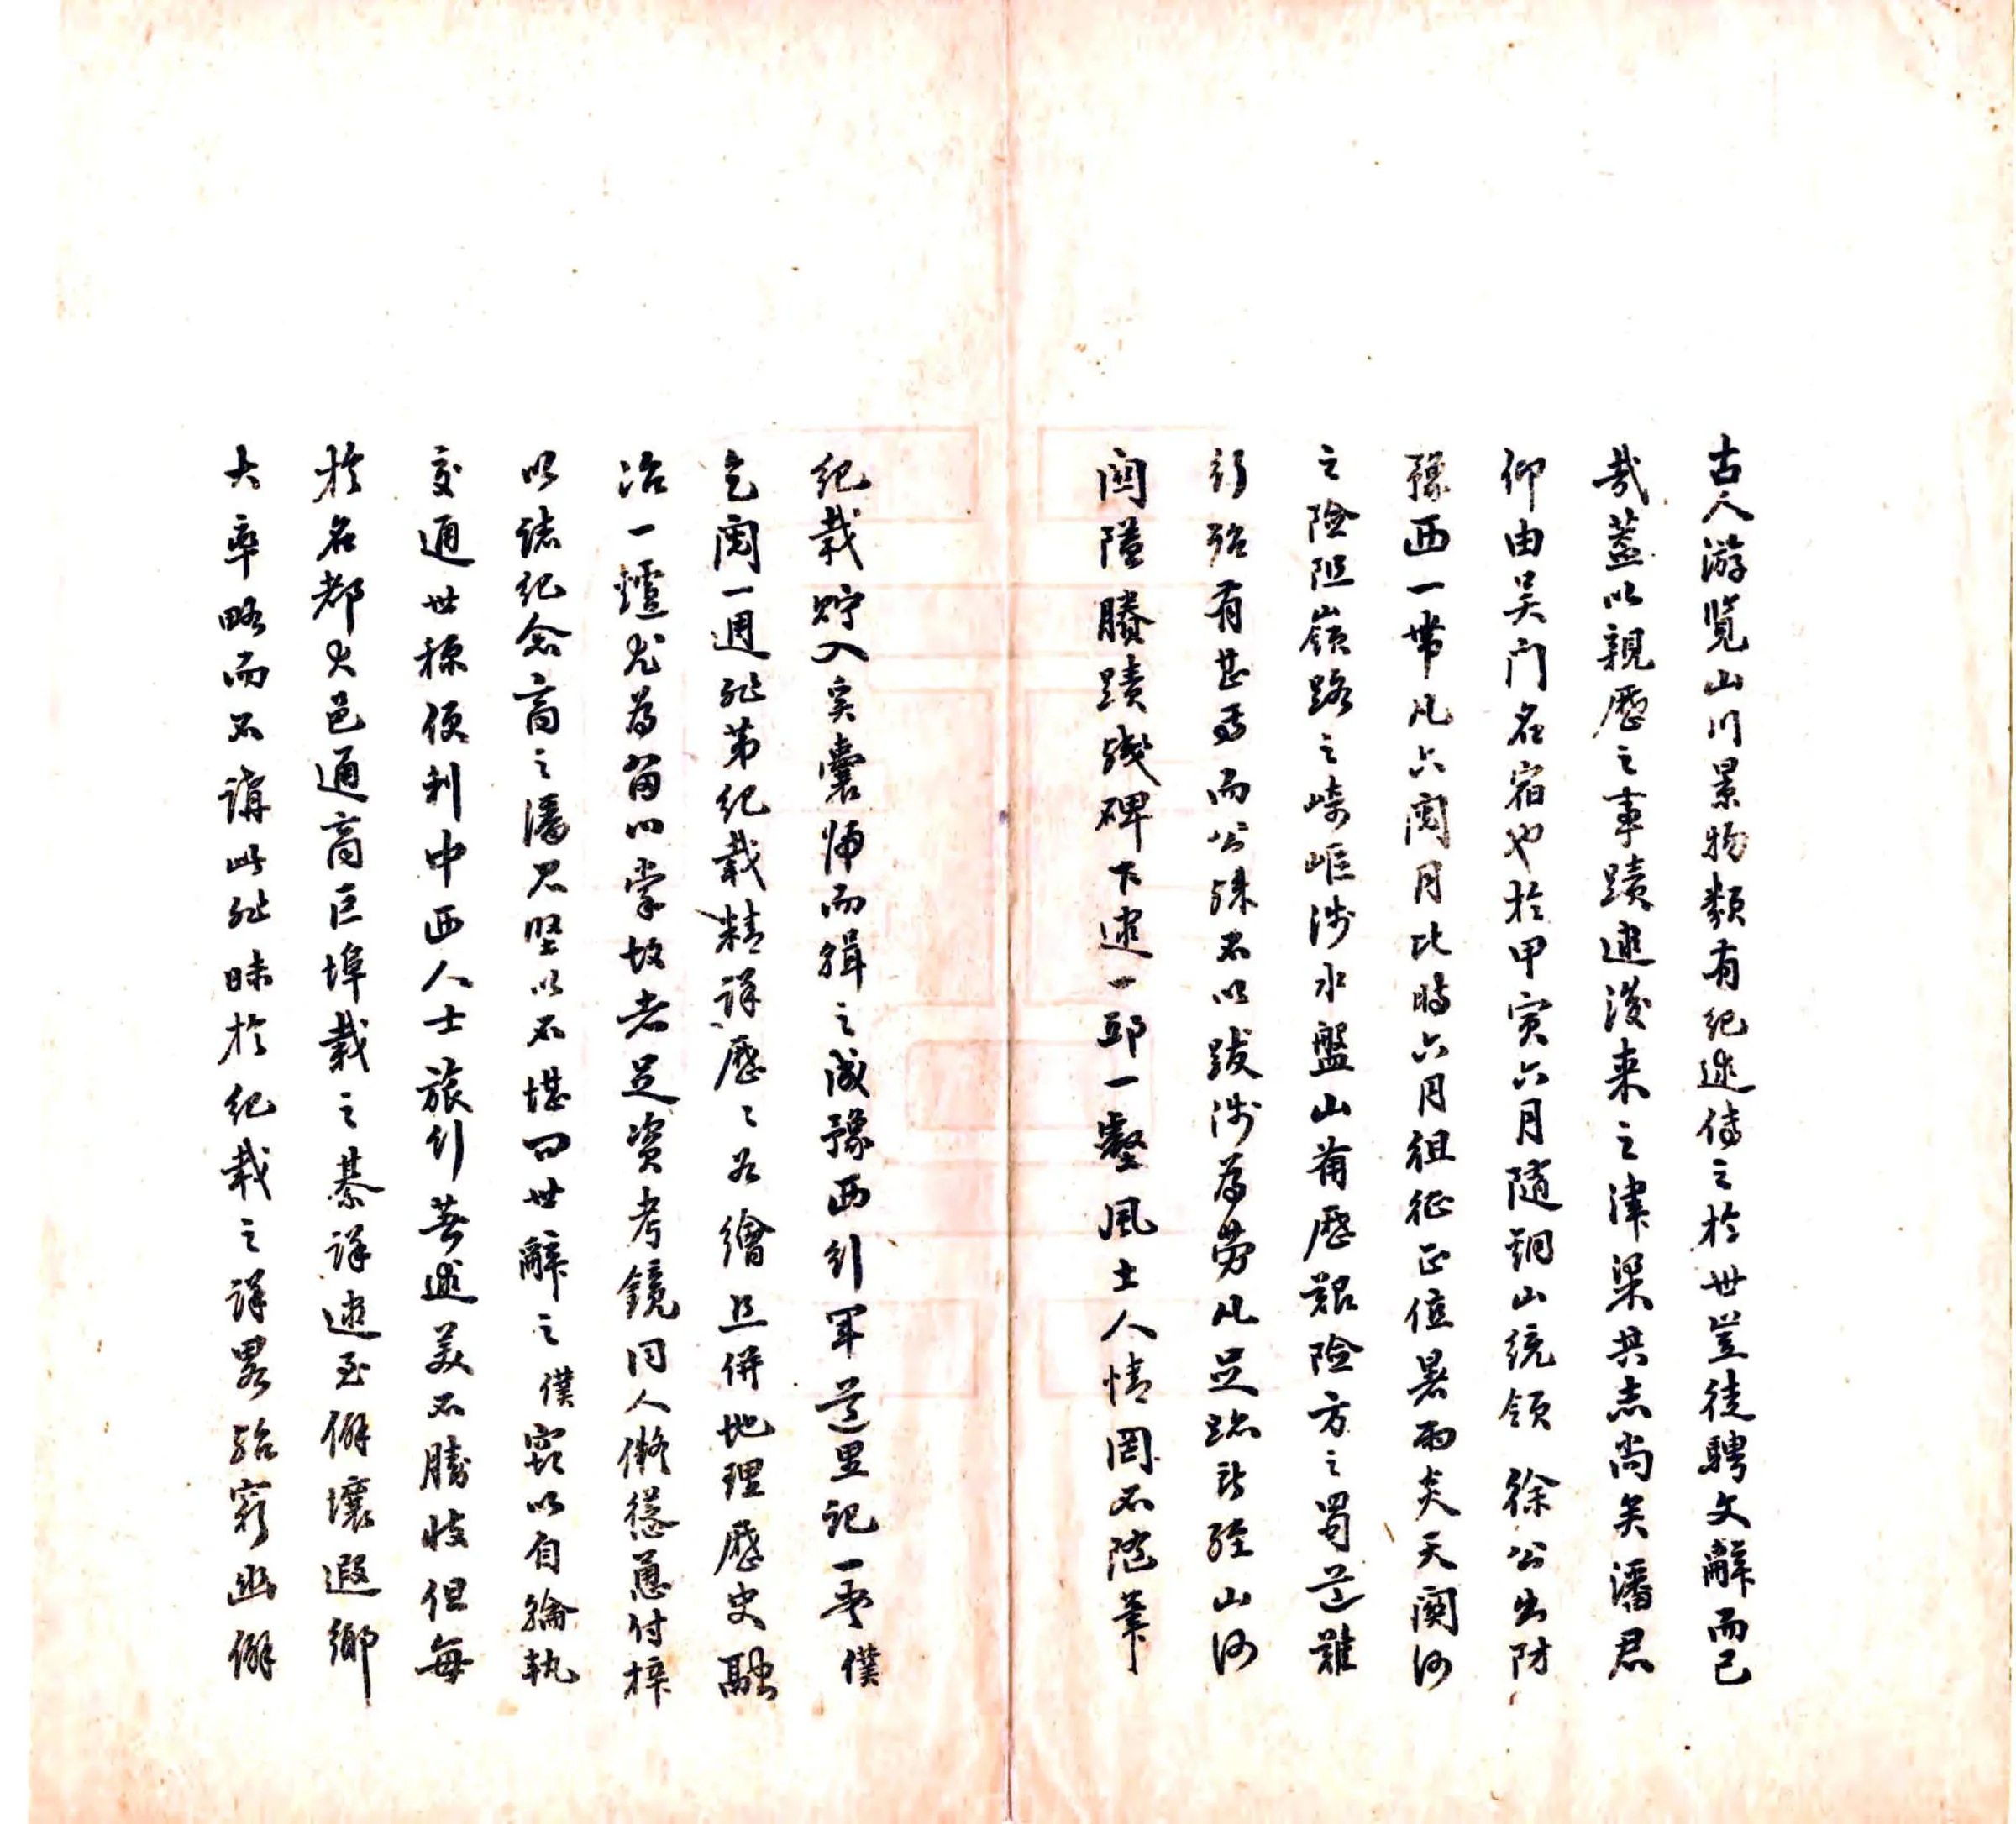 古人游覽山川景物類有紀述傳之於世豈徒騁文辭而已
哉蓋以親歷之事蹟述後來之津梁其志尚矣潘君
仰由吴门名宿也於甲寅六月隨銅山統領徐公出防
豫西一帶凡六閱月比時六月徂征正值暑雨炎天關河
之險阻嶺路之崎嶇涉水盤山備歷艱險方之蜀道難
行殆有甚焉而公殊不以跋涉為勞凡足跡所經山河
關隘勝蹟殘碑下逮一邱一壑風土人情罔不隨筆
紀载貯入奚囊歸而緝之成豫西行軍道里記一卷僕
乞閱一週非第紀載精詳歷歷如繪且併地理歷史融
冶一爐尤為留心掌故者足資考鏡同人慫恿付梓
以誌紀念商之潘君堅以不堪問世辭之僕竊以自輪軌
交通世稱便利中西人士旅行著述美不勝收但每
於名都大邑通商巨埠載之綦詳逮至僻壤遐鄉
大率略而不講此非昧於紀载之詳畧殆窮幽僻